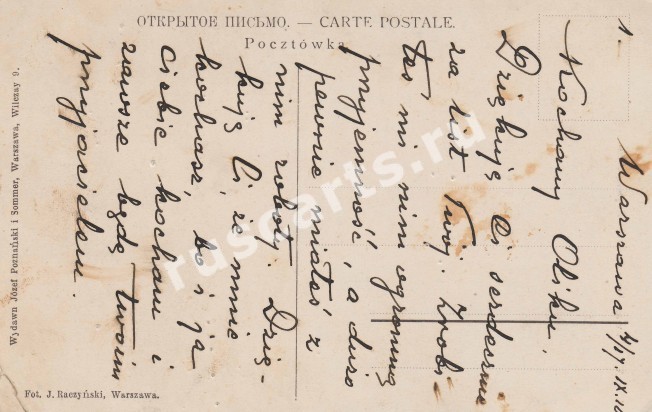 ОТКРЫТОЕ ПИСЬМО. — CARTE POSTALE.
Pocztówka
1.
Warszawa 4/17. IX.
Kochany Oliku!
Dziękuję Ci serdecznie
za list Twój. Zrobi-
łaś mi nim ogromną
przyjemność, a dużo
pewnie miałaś z
nim roboty. Dzię-
kuję Ci, że mnie
kochasz, bo i ja
Ciebie kocham i
zawsze będę twoim
przyjacielem.
Wydawn Józef Poznański i Sommer, Warszawa, Wilczay 9.
Fot. J. Raczyński, Warszawa.
ruscarts.ru